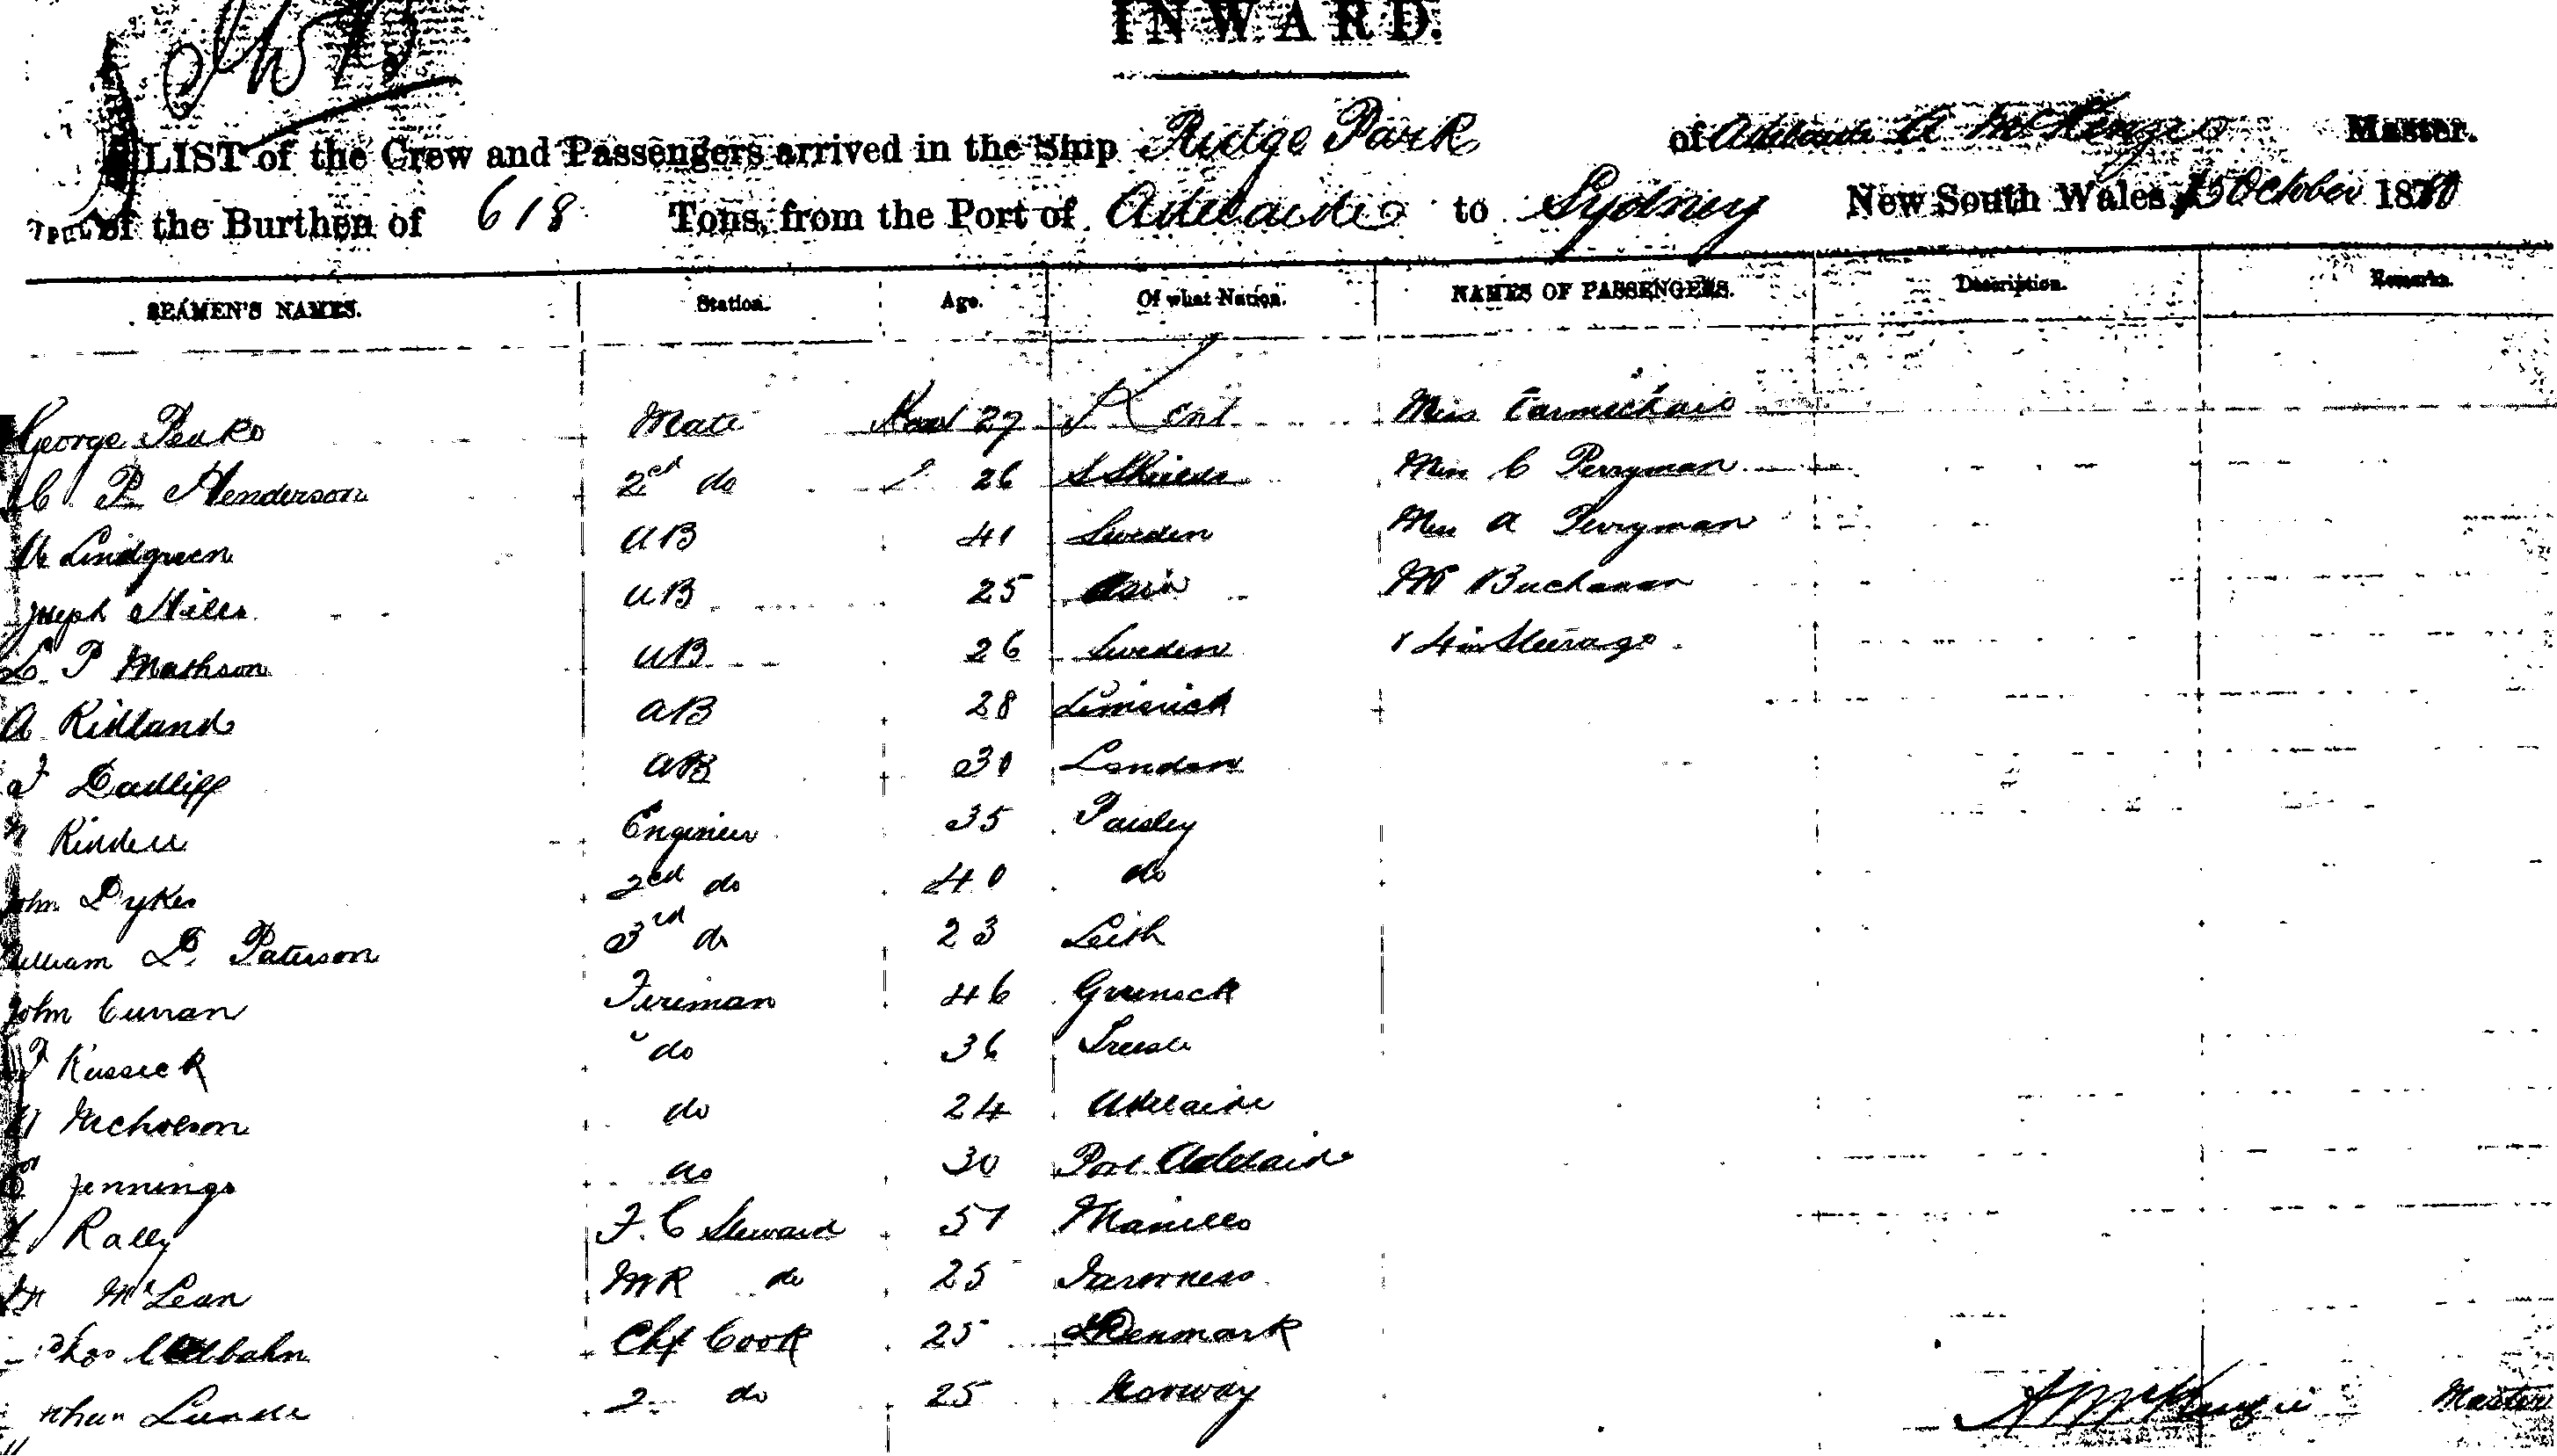 INWARD.
LIST of the Crew and Passengers arrived in the Ship Ridge Park of Adelaide A McKenzie Master.
of the Burthen of 618 Tons, from the Port of Adelaide to Sydney New South Wales, 15 October 1880
SEAMEN'S NAMES. Station. Age. Of what Nation. NAMES OF PASSENGERS. Description. Remarks.
George Peake Mate 27 Kent Miss Carmichael
C P Henderson 2nd do 26 S Shields Miss C Perryman
Lindgreen AB 41 Sweden Miss A Perryman
Joseph Miles AB 25 Asia Mr Buchanan
L P Mathson AB 26 Sweden 4 in Steerage
A Ridland AB 28 Limerick
Dadliff AB 30 London
Riddell Engineer 35 Paisley
John Dykes 2nd do 40 do
William D. Paterson 3rd do 23 Leith
John Curran Fireman 46 Greenock
Kussick do 36
Nicholson do 24 Adelaide
Jennings do 30 Port Adelaide
Rally F. C Steward 57 Manilla
McLean MR do 25 Inverness
Chf Cook 25 Denmark
Lunde 2 do 25 Norway
A McKenzie Master